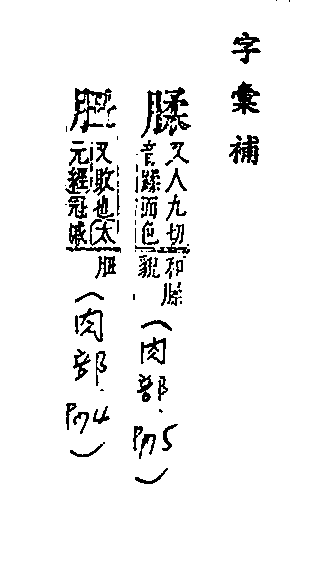 字彙補
腬
又人九切和腬
音蹂而色貌
又敗也太
元經冠戚胆
(肉部.P75)
(肉部.P74)